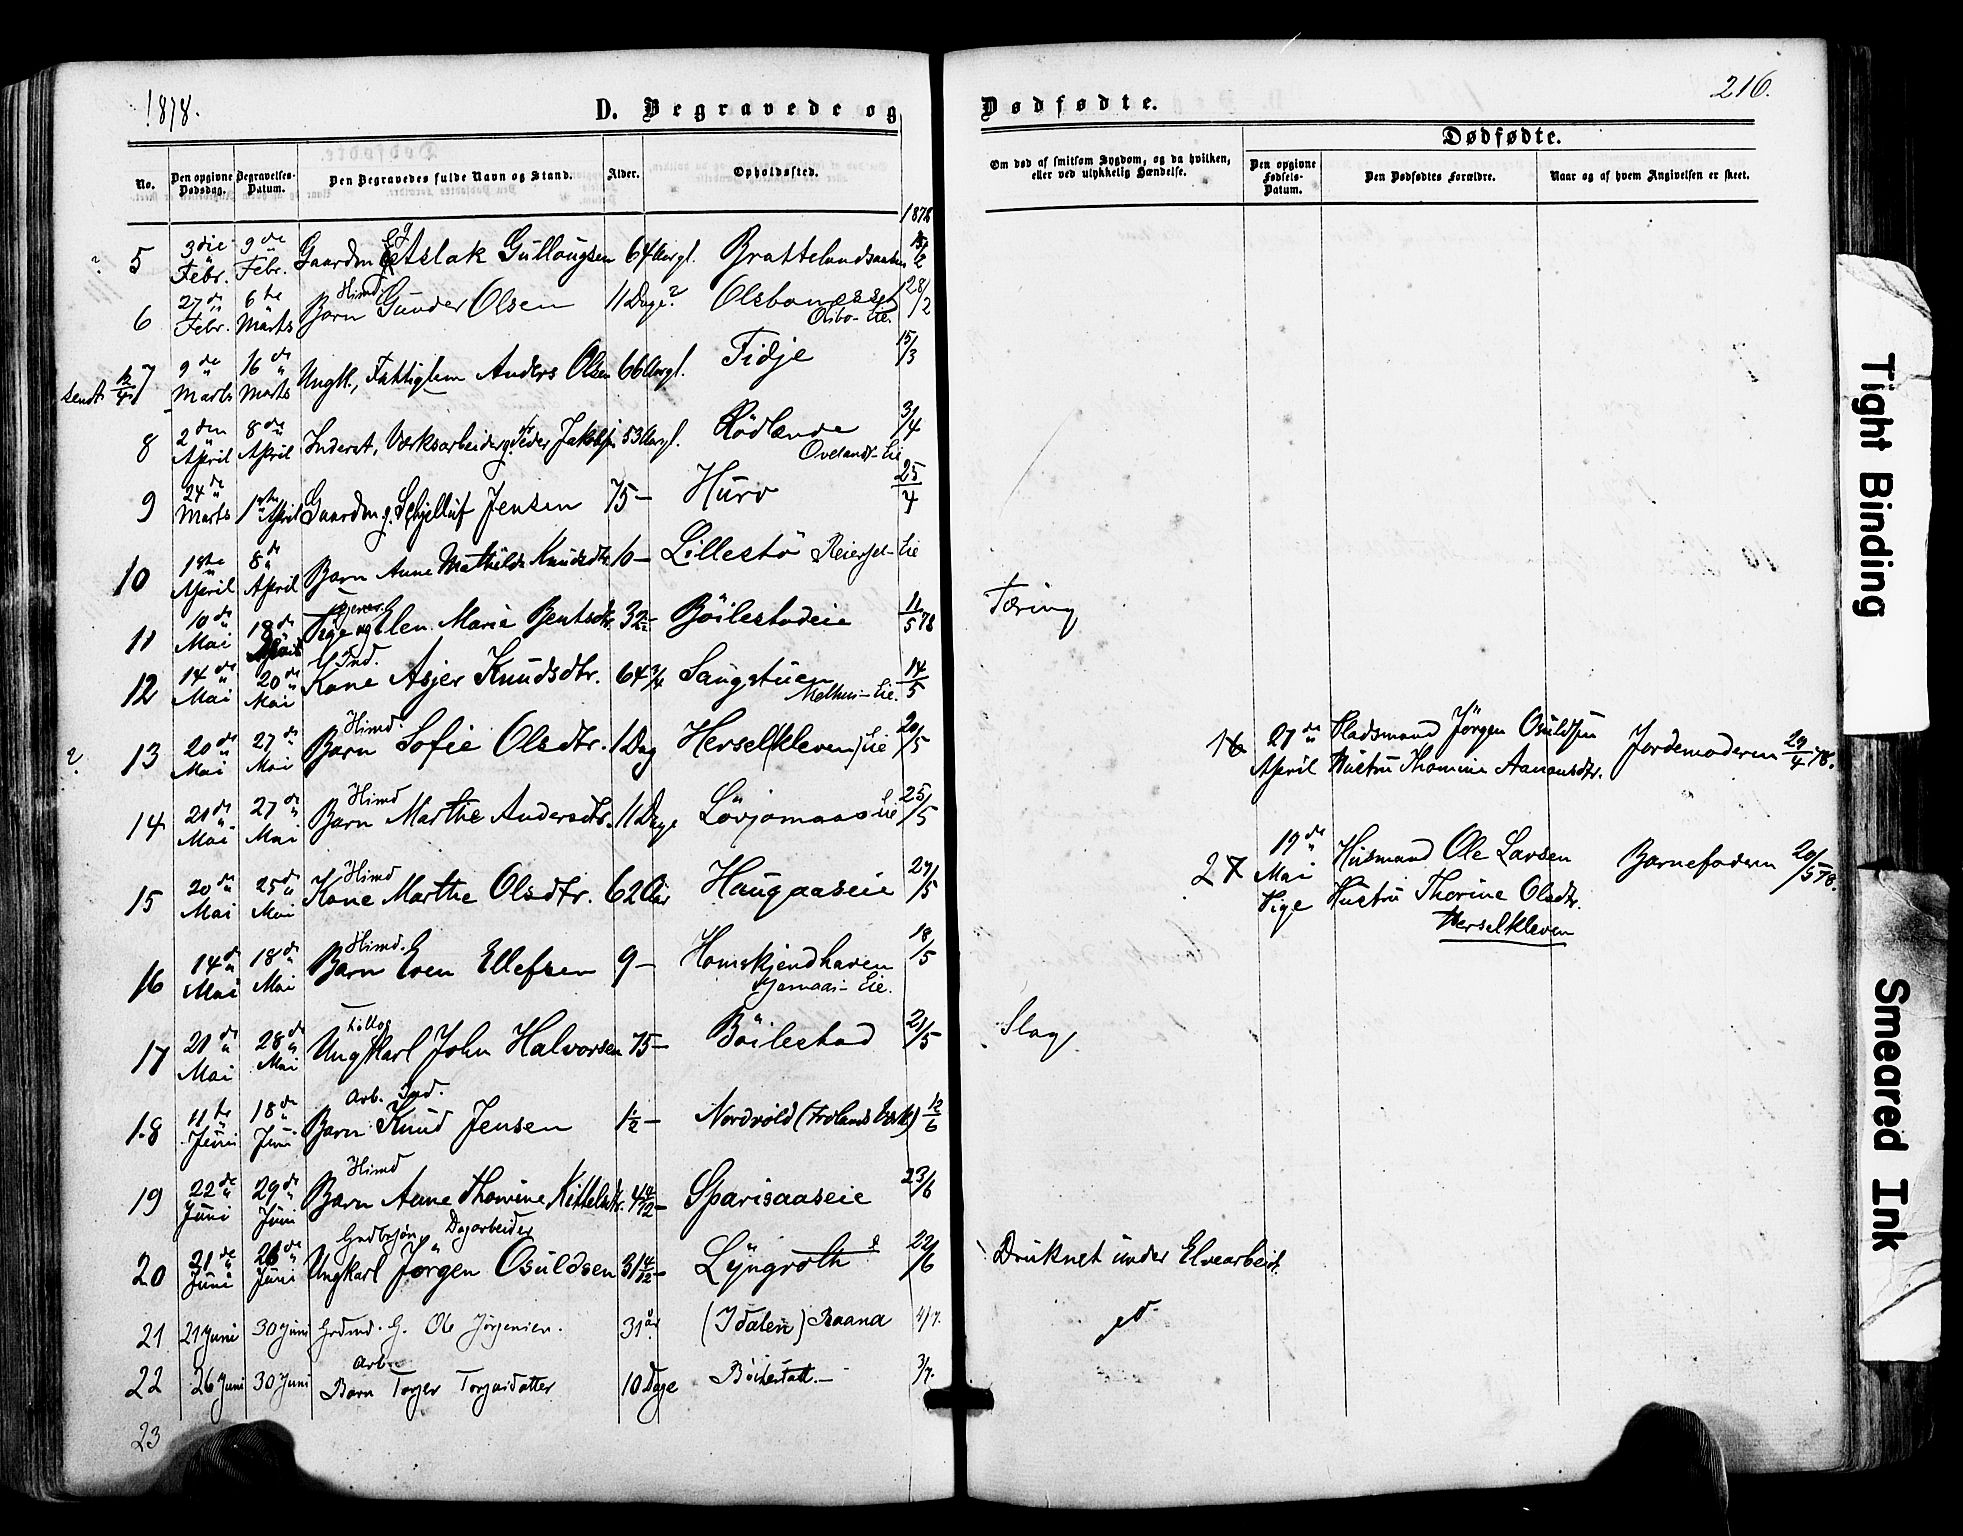 1878.
D. Begravede og
Dødfødte.
216.
No.
Den opgivne Dødsdag.
Begravelses-Datum.
Den Begravedes fulde Navn og Stand.
Alder.
Opholdssted.
Om død af smitsom Sygdom, og da hvilken, eller ved ulykkelig Hændelse.
Dødfødte.
Den opgivne Fødsels-Datum.
Den Dødfødtes Forældre.
Naar og af hvem Angivelsen er skeet.
1878
? 5 3die Febr. 9de Febr. Gaardm Aslak Gullougsen 64 Aargl.
6 27de Febr. 6te Marts Himd. Barn Gunder Olsen 11 Dage? Olsbonesset Osbo-Eie. 28/2
sendt 12/4 7 9de Marts 16de Marts Ungk., Fattiglem Anders Olsen 66 Aargl. Fidje 15/3
8 2den April 8de April Inderst, Værksarbeider g. Peder Jakobsen 53 Aargl. Rødlande Ovelands-Eie 3/4
9 24de Marts 1ste April Gaardm. g. Jensen 75 — Hurv 25/4
10 1ste April 8de April Barn Anne Mathilde Knudsdtr. 6 — Lillestø Reiersel-Eie
11 10de Mai 18de Pige Elen Marie Bentsdtr. 32 — Böilestadeie 11/5 78 Tæring
12 14de Mai 20de Mai Gd Ind. Kone Asjer Knudsdtr. 64 3/4 Saugstuen Melhus-Eie. 14/5
? 13 20de Mai 27de Mai Himd. Barn Sofie Olsdtr. 1 Dag Herselkleven Eie 20/5
16 27de April Pladsmand Jörgen Osuldsen Hustru Thomine Aanonsdtr. Jordemoderen 29/4 78.
14 21de Mai 27de Mai Himd Barn Marthe Andersdtr. 11 Dage Lövjomaas Eie 25/5
27 19de Mai Pige Husmand Ole Larsen Hustru Thorine Olsdtr. Herselkleven Barnefaderen 20/5 78.
15 20de Mai 25de Mai Himd Kone Marthe Olsdtr. 62 Aar Haugaaseie 27/5
16 14de Mai 18de Mai Himd. Barn Even Ellefsen 9 — Homskjendhaven Eie. 18/5
17 21de Mai 28de Mai Ungkarl John Halvorsen 75 — Böilestad 21/5 Slag.
18 11te Juni 18de Juni Arb. Ind. Barn Knud Jensen 1 1/2 — Nordvold (Frolands Værk) 12/6
19 22de Juni 29de Juni Himd Barn Anne Thomine Kittelsdtr. Sparisaaseie 23/6
20 21de Juni 26de Juni Dagarbeider Ungkarl Jörgen Osuldsen 31 Lyngroth 22/6 Druknet under Elvearbeid.
21 21 Juni 30 Juni Grdmd. G. Ole Jörgensen. 31 år (Idalen) Raana 4/7. do
22 26 Juni 30 Juni Arb. Barn Torjer 10 Dage 3/7.
23
Tight Binding
Smeared Ink